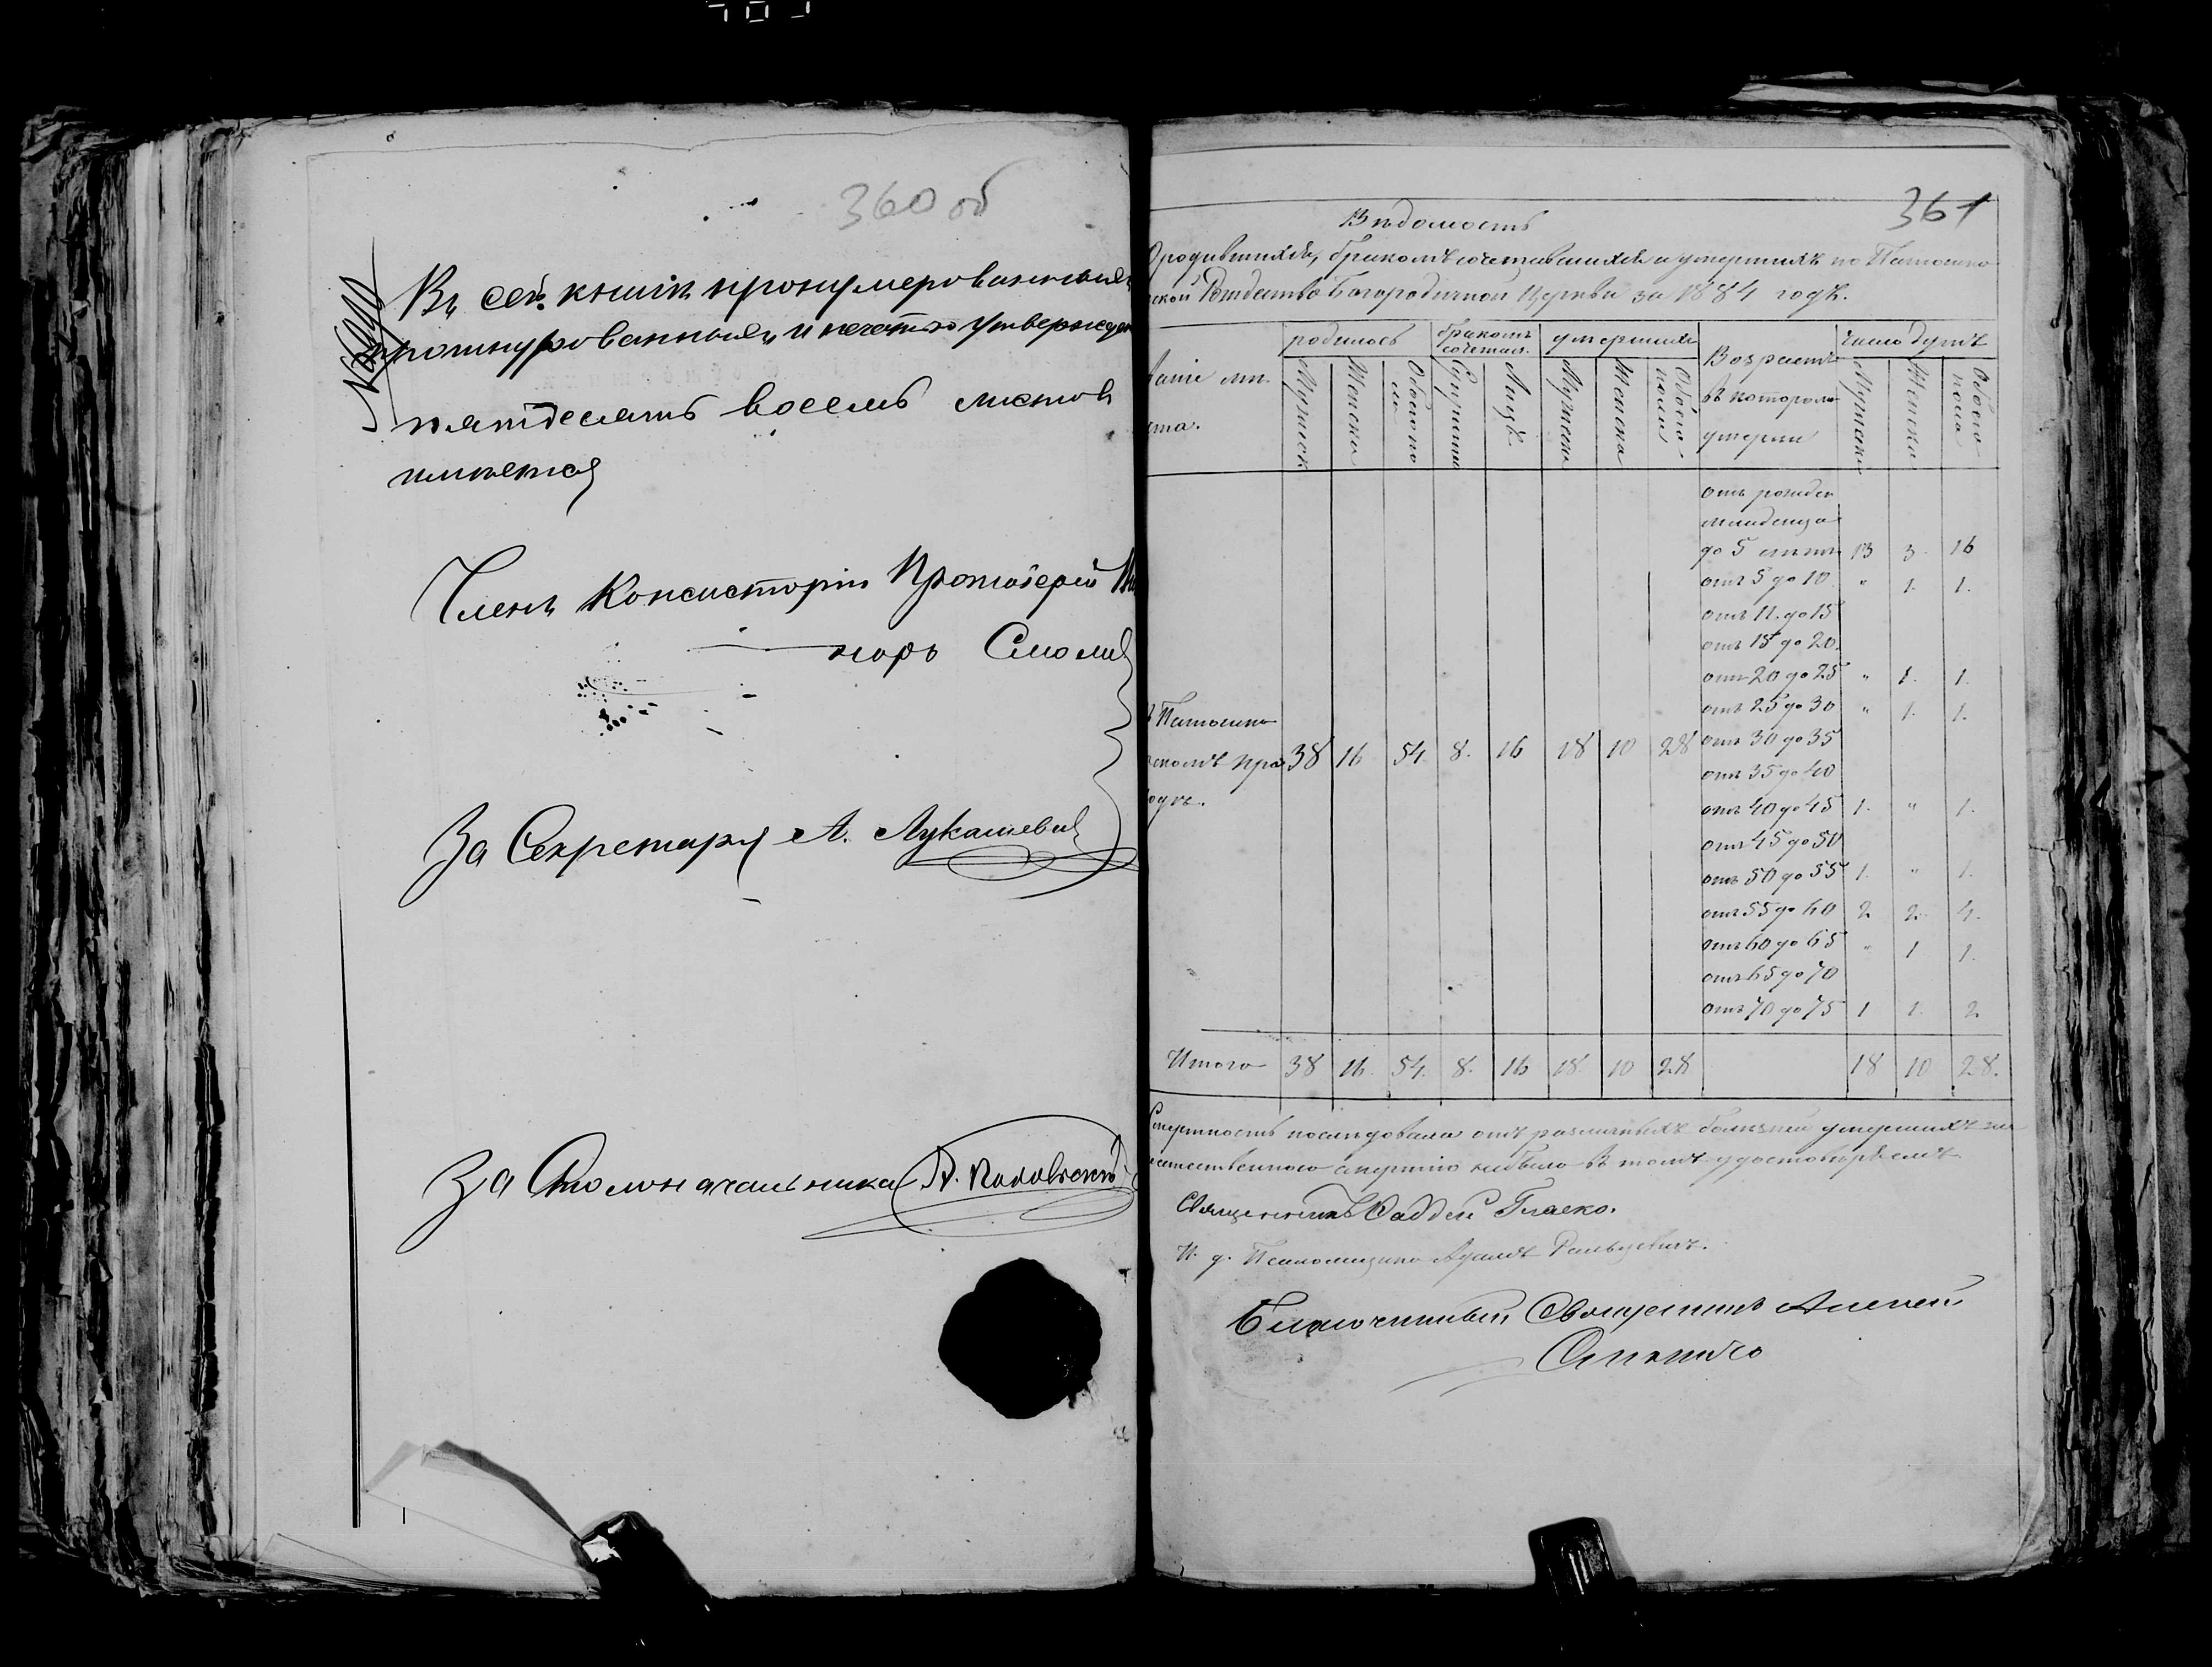 360 об
Въ сей книгѣ пронумерованныхъ
прошнурованныхъ и печатью утвержден
пятдесять восемь листовъ
имѣется
Членъ Консисторіи Протоіерей
норъ Смоли
За Секретаря А. Лукашевич
За Столоначальника
361
Вѣдомость
О родившихся, бракомъ сочетавшихся и умершихъ по
ской Рождество Богородичной Церкви за 1884 годъ.
родилось бракомъ сочетал. умершихъ Возрастъ въ котором умерли Число душъ
Мужеск Женска Обоего Супружес Лицъ Мужеска Женска Обоего пола Мужеска Женска Обоего пола
отъ рожден
младенца
до 5 лѣтъ 13 3. 16
отъ 5 до 10. " 1. 1.
отъ 11. до 15
отъ 15 до 20.
отъ 20 до 25 " 1. 1.
отъ 25 до 30 " 1. 1.
скомъ при 38 16 54. 8. 16 18 10 28 отъ 30 до 35
отъ 35 до 40
одѣ.
отъ 40 до 45 1. " 1.
отъ 45 до 50
отъ 50 до 55 1. " 1.
отъ 55 до 60 2 2. 4.
отъ 60 до 65 " 1 1.
отъ 65 до 70
отъ 70 до 75 1 1. 2
Итого 38 16. 54. 8. 16 18. 10 28 18 10 28.
Смертность послѣдовала отъ различныхъ болѣзней умершихъ не
естественною смертію небыло въ томъ удостовѣряемъ
Священникъ Фаддей Гласко.
И. д. Псаломщика Адамъ
Благочинный, Священникъ Алексей